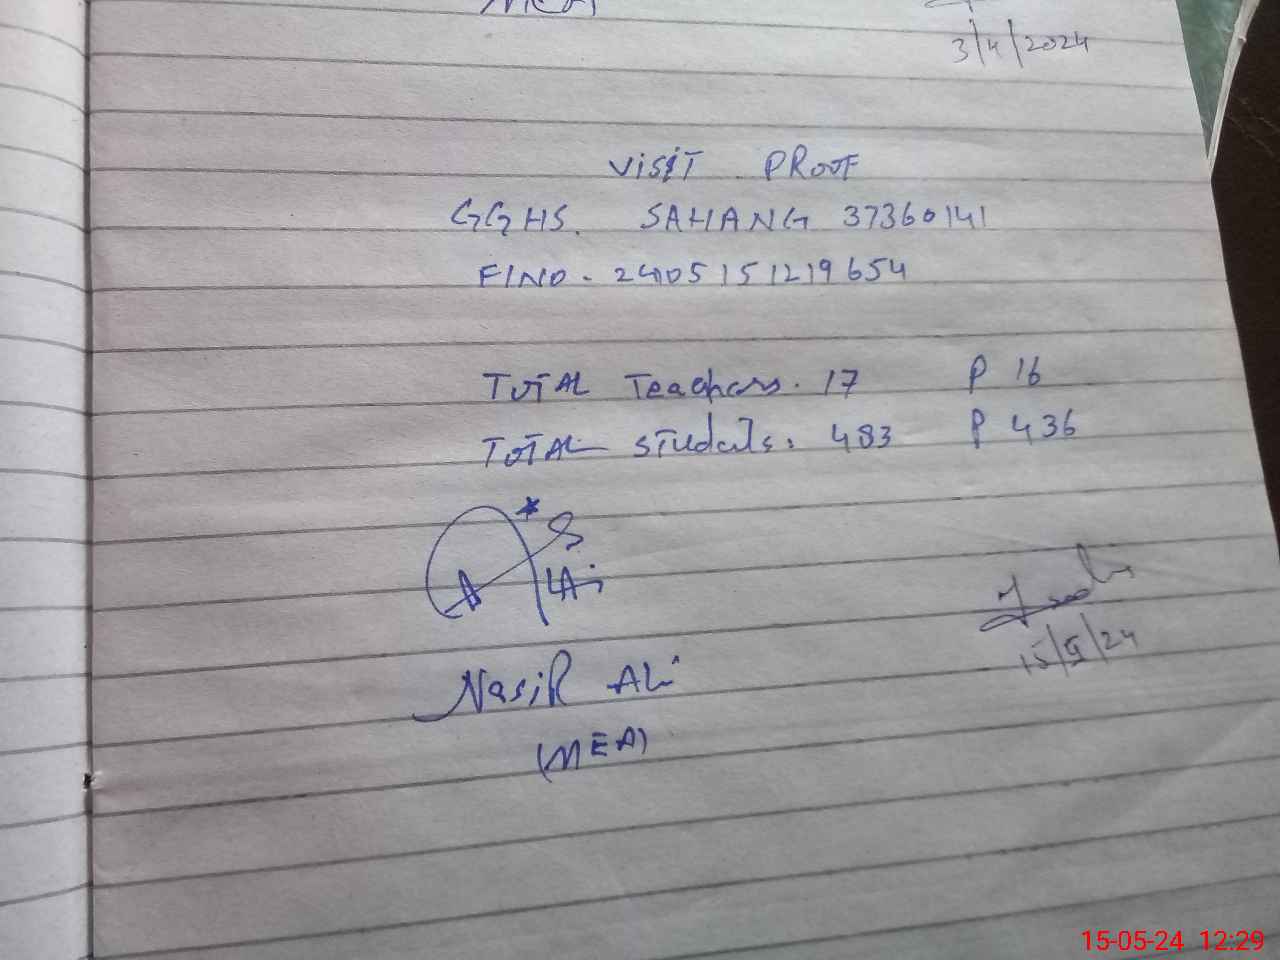 3/4/2024
VISIT PROOF
GGHS. SAHANG 37360141
FIND - 2405151219654
TOTAL Teachers. 17 P 16
TOTAL Students: 483 P 436
Nasir Ali
15/5/24
(MEA)
15-05-24 12:29